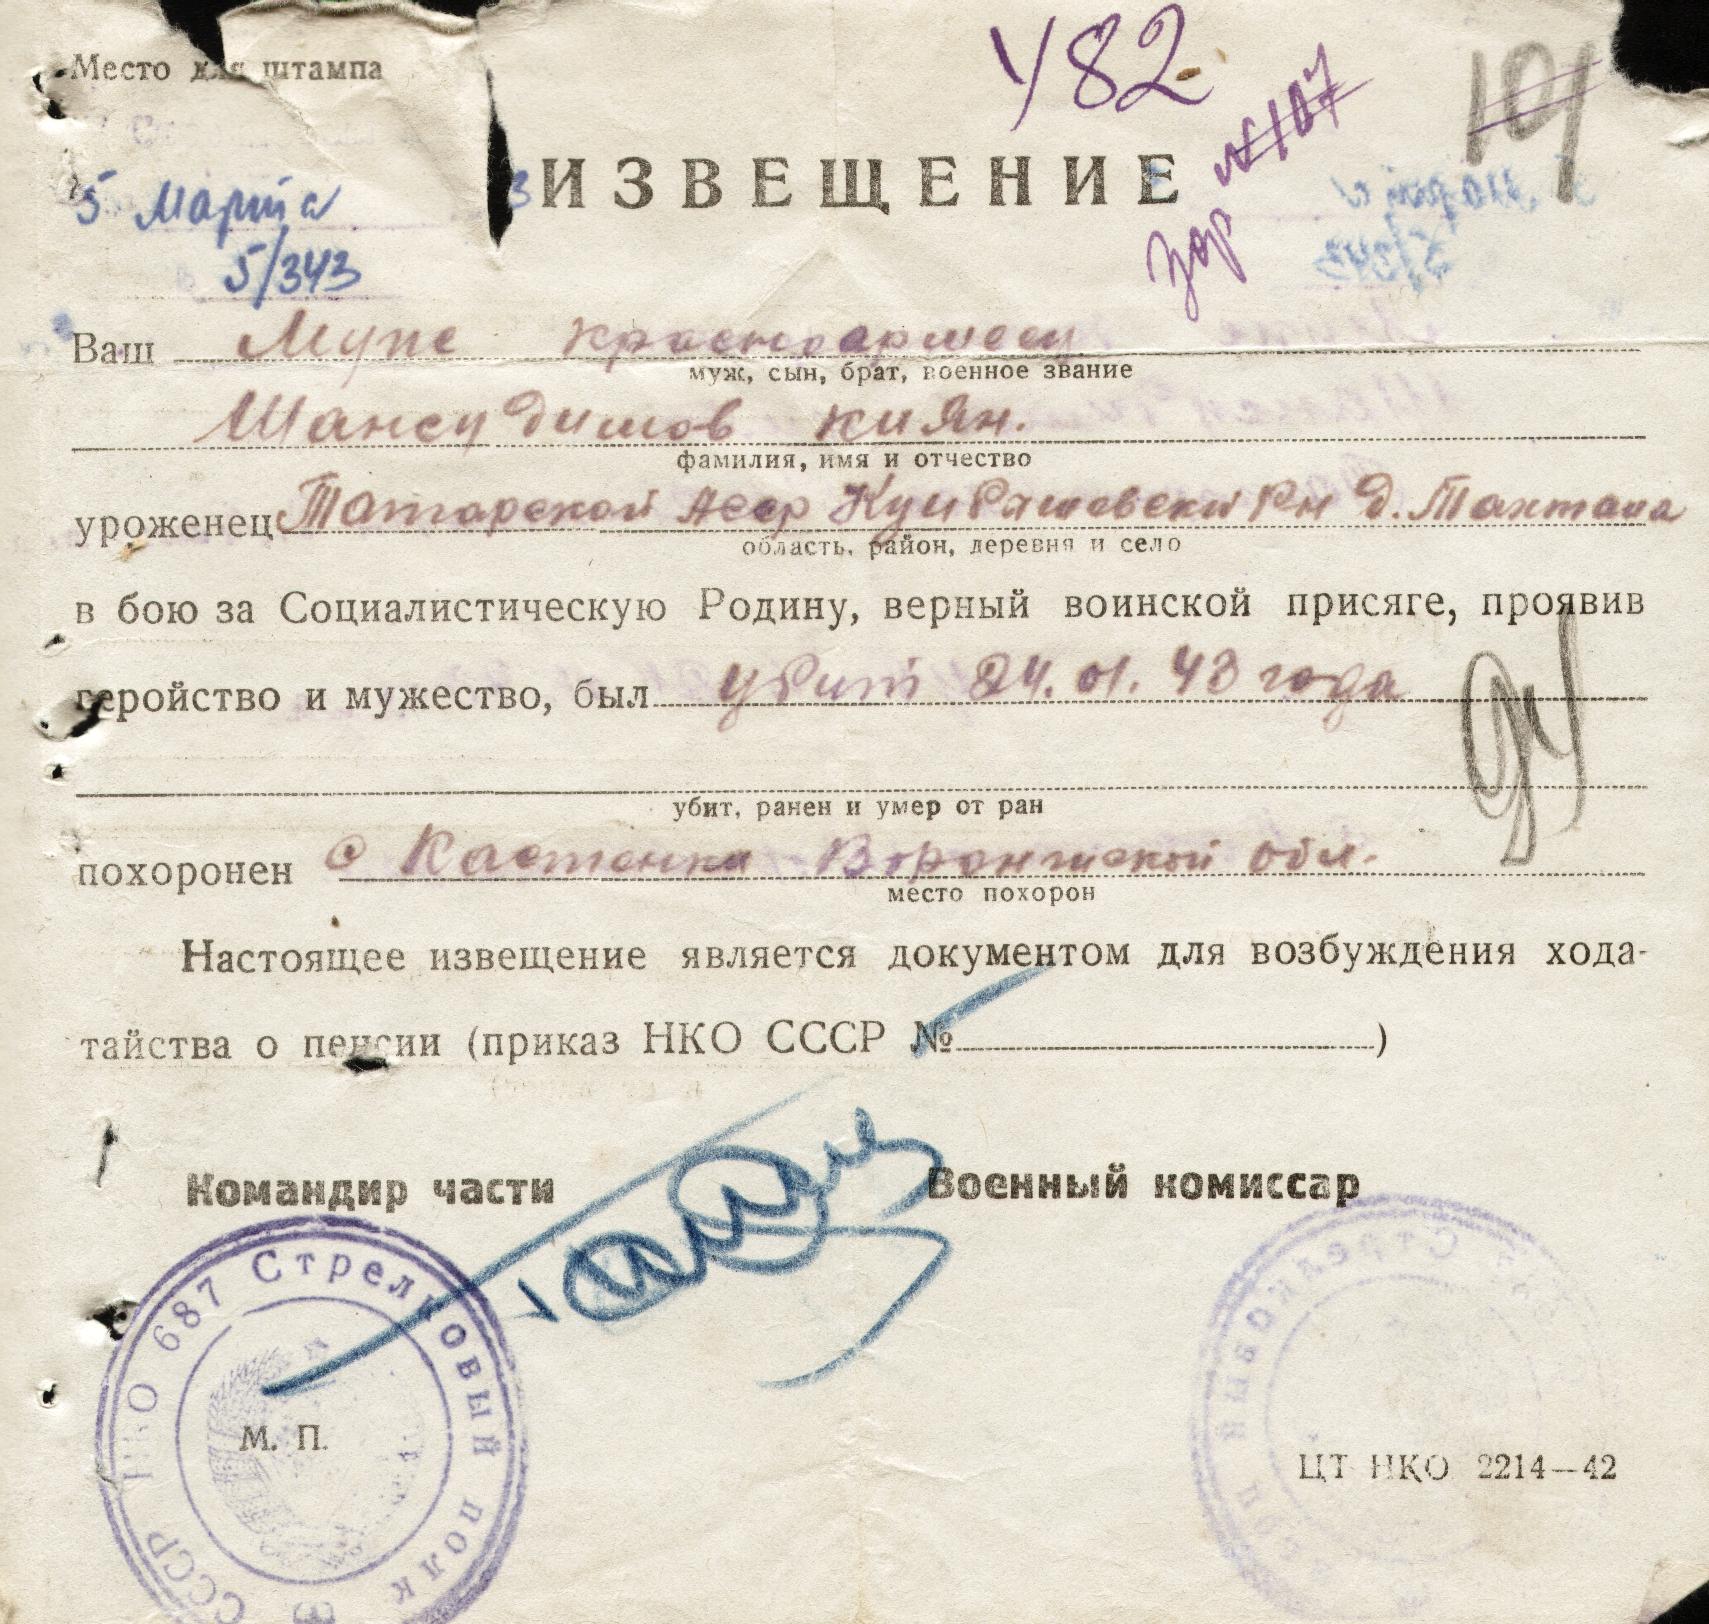 Место для штампа
482
101
зар №107
5 Марта 3
5/343
ИЗВЕЩЕНИЕ
Ваш Муже красноармеец
муж, сын, брат, военное звание
Шансудимов киян.
фамилия, имя и отчество
уроженец Татарской Асср Куйбышевски Рн д. Тахтала
область, район, деревня и село
в бою за Социалистическую Родину, верный воинской присяге, проявив
геройство и мужество, был убит 24. 01. 43 года
94
убит, ранен и умер от ран
похоронен с Костенки Воронжской обл.
место похорон
Настоящее извещение является документом для возбуждения хода-
тайства о пенсии (приказ НКО СССР № )
Командир части Военный комиссар
НКО 687 Стрелковый полк СССР
М. П.
ЦТ НКО 2214—42